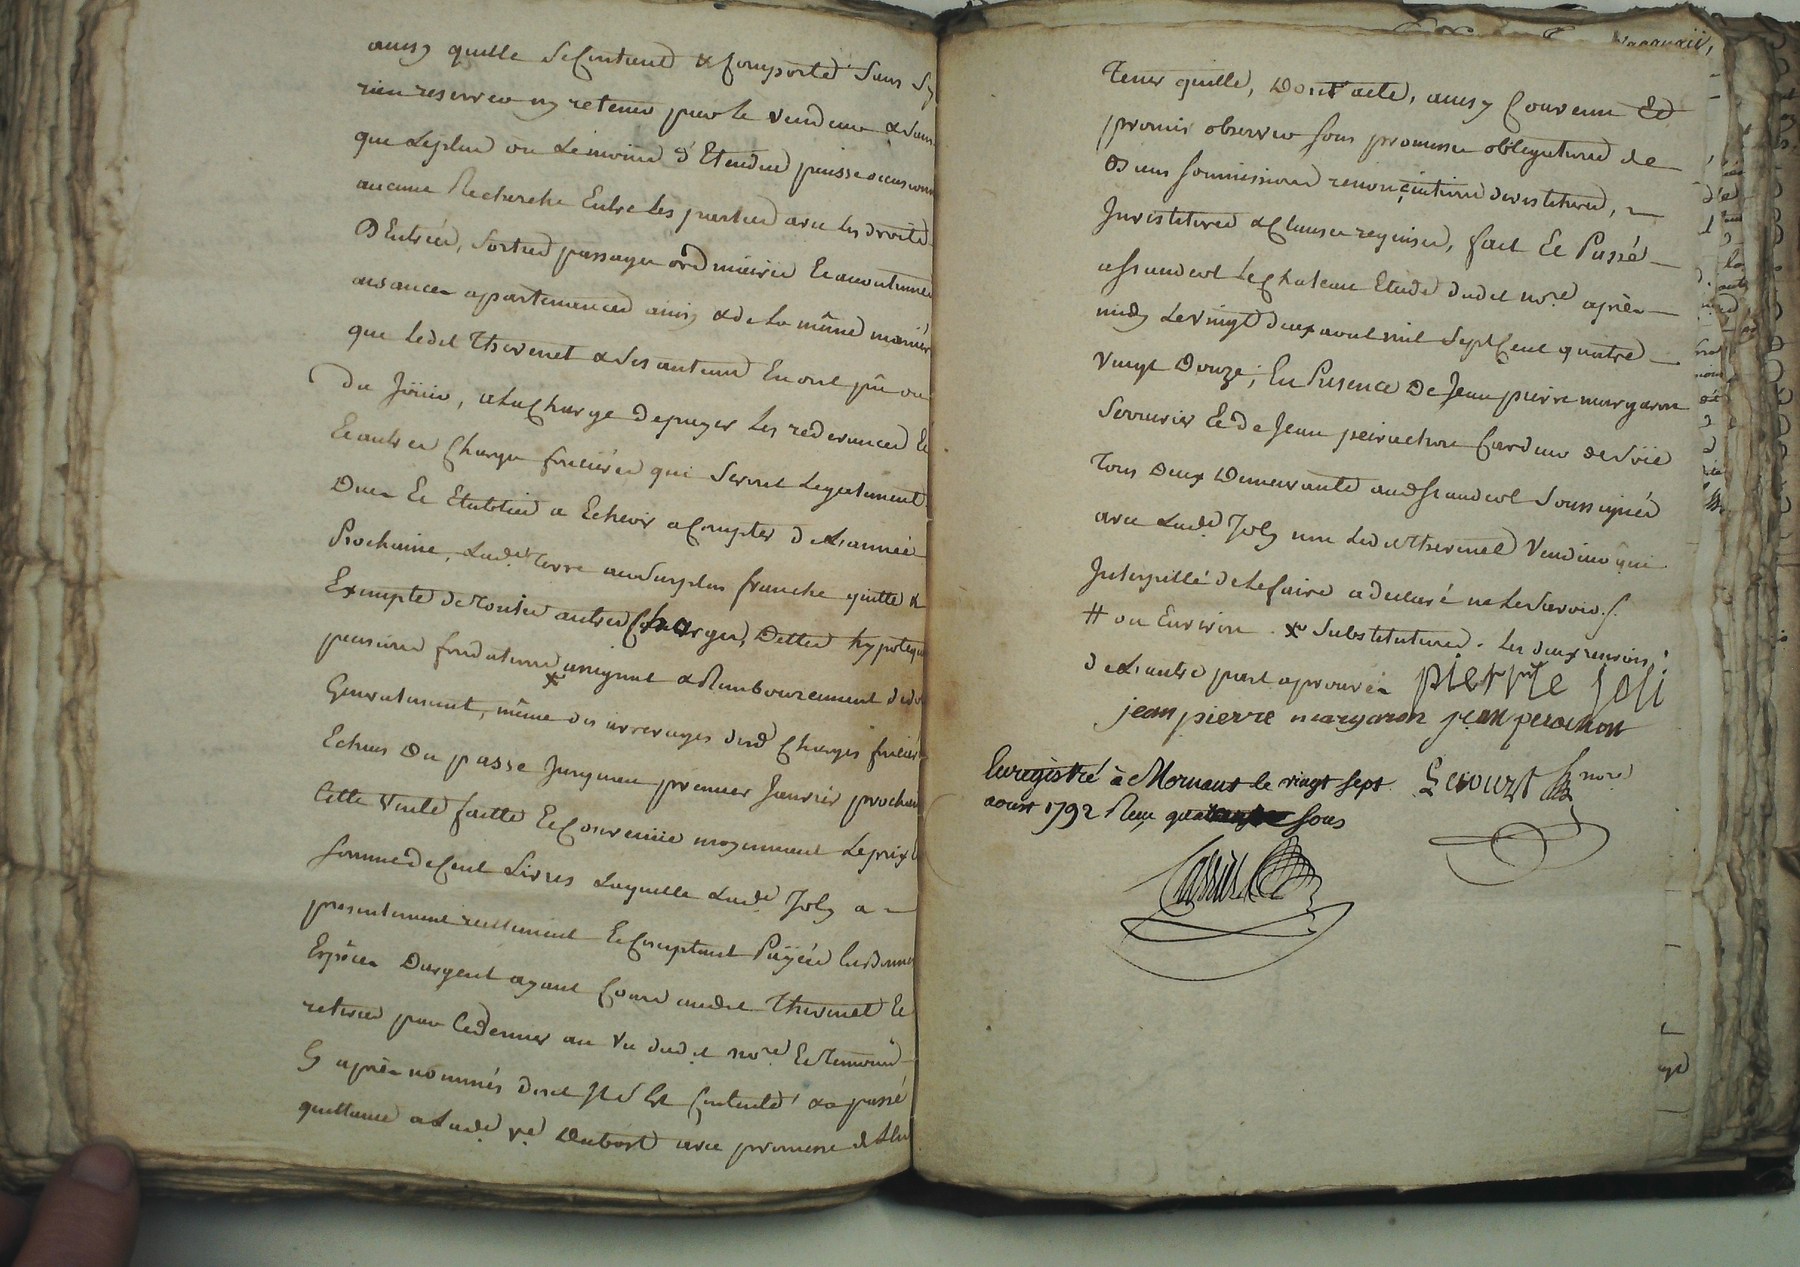 ainsy quelle se Contient & Comporte Sans Sy
rien reserver ny retenir par le vendeur & Sans
que Leplus ou Lemoins d'Etendue puisse occasionner
aucune Recherche Entre Les parties avec Les droits
D'Entrées, Sorties passages ordinaires Et accoutumés
aisances apartenances ainsy & de La même maniere
que Ledit Thevenet & Ses auteurs En ont pû ou
du Joüir, a La Charge de payer Les redevances Et
Et autres Charges foncieres qui Seront Legalement
Dues Et Etablies a Echeoir a Compter de L'année
Prochaine, Lade. terre au Surplus franche quitte &
Exempte de Toutes autres Charges, Dettes hypoteques
pensions fondations assignat & Rembourcement d'icelles
Generalement, même des arrerages desd Charges foncieres
Echus Du passé Jusqu'au premier Janvier prochain
Cette Vente faitte Et Convenüe moyennant Le prix &
Somme de Cent Livres Laquelle Lade. Joly a
presentement reellement Et Comptant Payée En Bonnes
Espèces D'argent ayant Cours audit Thevenet Et
retirées par Ce dernier au Vu dudit nore. Et Temoins
Cy après nommés dont Il S'est Contenté & a passé
quittance a Lade. ve. Dubost avec promesse de L'en
Tenir quitte, Dont acte, ainsy Convenu Et
promis observer Sous promesses obligations de
Biens Soumissions renonciations devestitures,
Investitures & Clauses requises, fait Et Passé
a St andeol Le Chateau Etude dudit nore. après
midy Le vingt deux aout mil Sept Cent quatre
Vingt Douze; En Presence De Jean pierre margaron
Serrurier Et de Jean peirachon Cardeur de Soie
Tous Deux Demeurants aud St andeol Soussignés
avec Lade. Joly non Ledit Thevenet Vendeur qui
Interpellé de Le faire a declaré ne Le Savoir./.
# ou Environ. x Substitutions. Les deux renvois
de L'autre part aprouvés pierrre joli
jean pierre margaron jean perachon
Enregistré à Mornant le vingt sept
aoust 1792 Reçu sous
nore